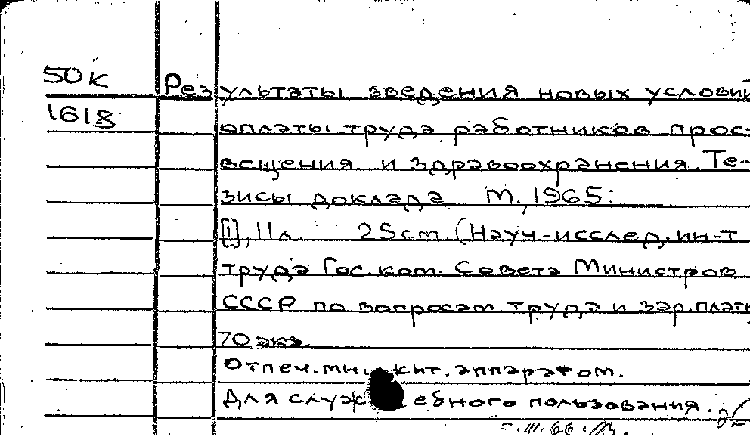 50К Результаты введения новых услови
1618
оплаты труда работников прос-
вещения и здравоохранения. Те-
зисы доклада М., 1965.
[1], 11 л. 25 см. (Науч.-исслед. ин-т
труда Гос. ком. Совета Министров
СССР по вопросам труда и зар. платы
70 экз.
Отпеч. мн кит. аппаратом.
Для служ ебного пользования.